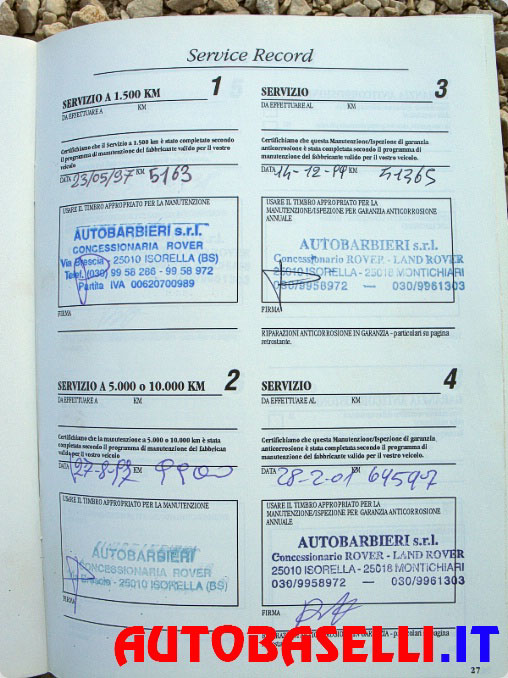 Service Record
1
SERVIZIO A 1.500 KM
DA EFFETTUARE A KM
Certifichiamo che il Servizio a 1.500 km è stato completato secondo
il programma di manutenzione del fabbricante valido per il vostro
veicolo
DATA 23/05/97 KM 5163
USARE IL TIMBRO APPROPRIATO PER LA MANUTENZIONE
AUTOBARBIERI s.r.l.
CONCESSIONARIA ROVER
Via Brescia - 25010 ISORELLA (BS)
Telef. (030) 99 58 286 - 99 58 972
Partita IVA 00620700989
FIRMA
2
SERVIZIO A 5.000 o 10.000 KM
DA EFFETTUARE A KM
Certifichiamo che la manutenzione a 5.000 o 10.000 km è stata
completata secondo il programma di manutenzione del fabbricante
valido per il vostro veicolo
DATA 27-8-97 KM
USARE IL TIMBRO APPROPRIATO PER LA MANUTENZIONE
AUTOBARBIERI
CONCESSIONARIA ROVER
Brescia - 25010 ISORELLA (BS)
FIRMA
3
SERVIZIO
DA EFFETTUARE AL KM
Certifichiamo che questa Manutenzione/Ispezione di garanzia
anticorrosione è stata completata secondo il programma di
manutenzione del fabbricante valido per il vostro veicolo.
DATA 14-12-99 KM 51365
USARE IL TIMBRO APPROPRIATO PER LA
MANUTENZIONE/ISPEZIONE PER GARANZIA ANTICORROSIONE
ANNUALE
AUTOBARBIERI s.r.l.
Concessionario ROVER - LAND ROVER
25010 ISORELLA - 25018 MONTICHIARI
030/9958972 — 030/9961303
FIRMA
RIPARAZIONI ANTICORROSIONE IN GARANZIA - particolari su pagina
retrostante.
4
SERVIZIO
DA EFFETTUARE AL KM
Certifichiamo che questa Manutenzione/Ispezione di garanzia
anticorrosione è stata completata secondo il programma di
manutenzione del fabbricante valido per il vostro veicolo.
DATA 28-2-01 KM 64590
USARE IL TIMBRO APPROPRIATO PER LA
MANUTENZIONE/ISPEZIONE PER GARANZIA ANTICORROSIONE
ANNUALE
AUTOBARBIERI s.r.l.
Concessionario ROVER - LAND ROVER
25010 ISORELLA - 25018 MONTICHIARI
030/9958972 — 030/9961303
FIRMA
IN GARANZIA - particolari su pagina
27
AUTOBASELLI.IT